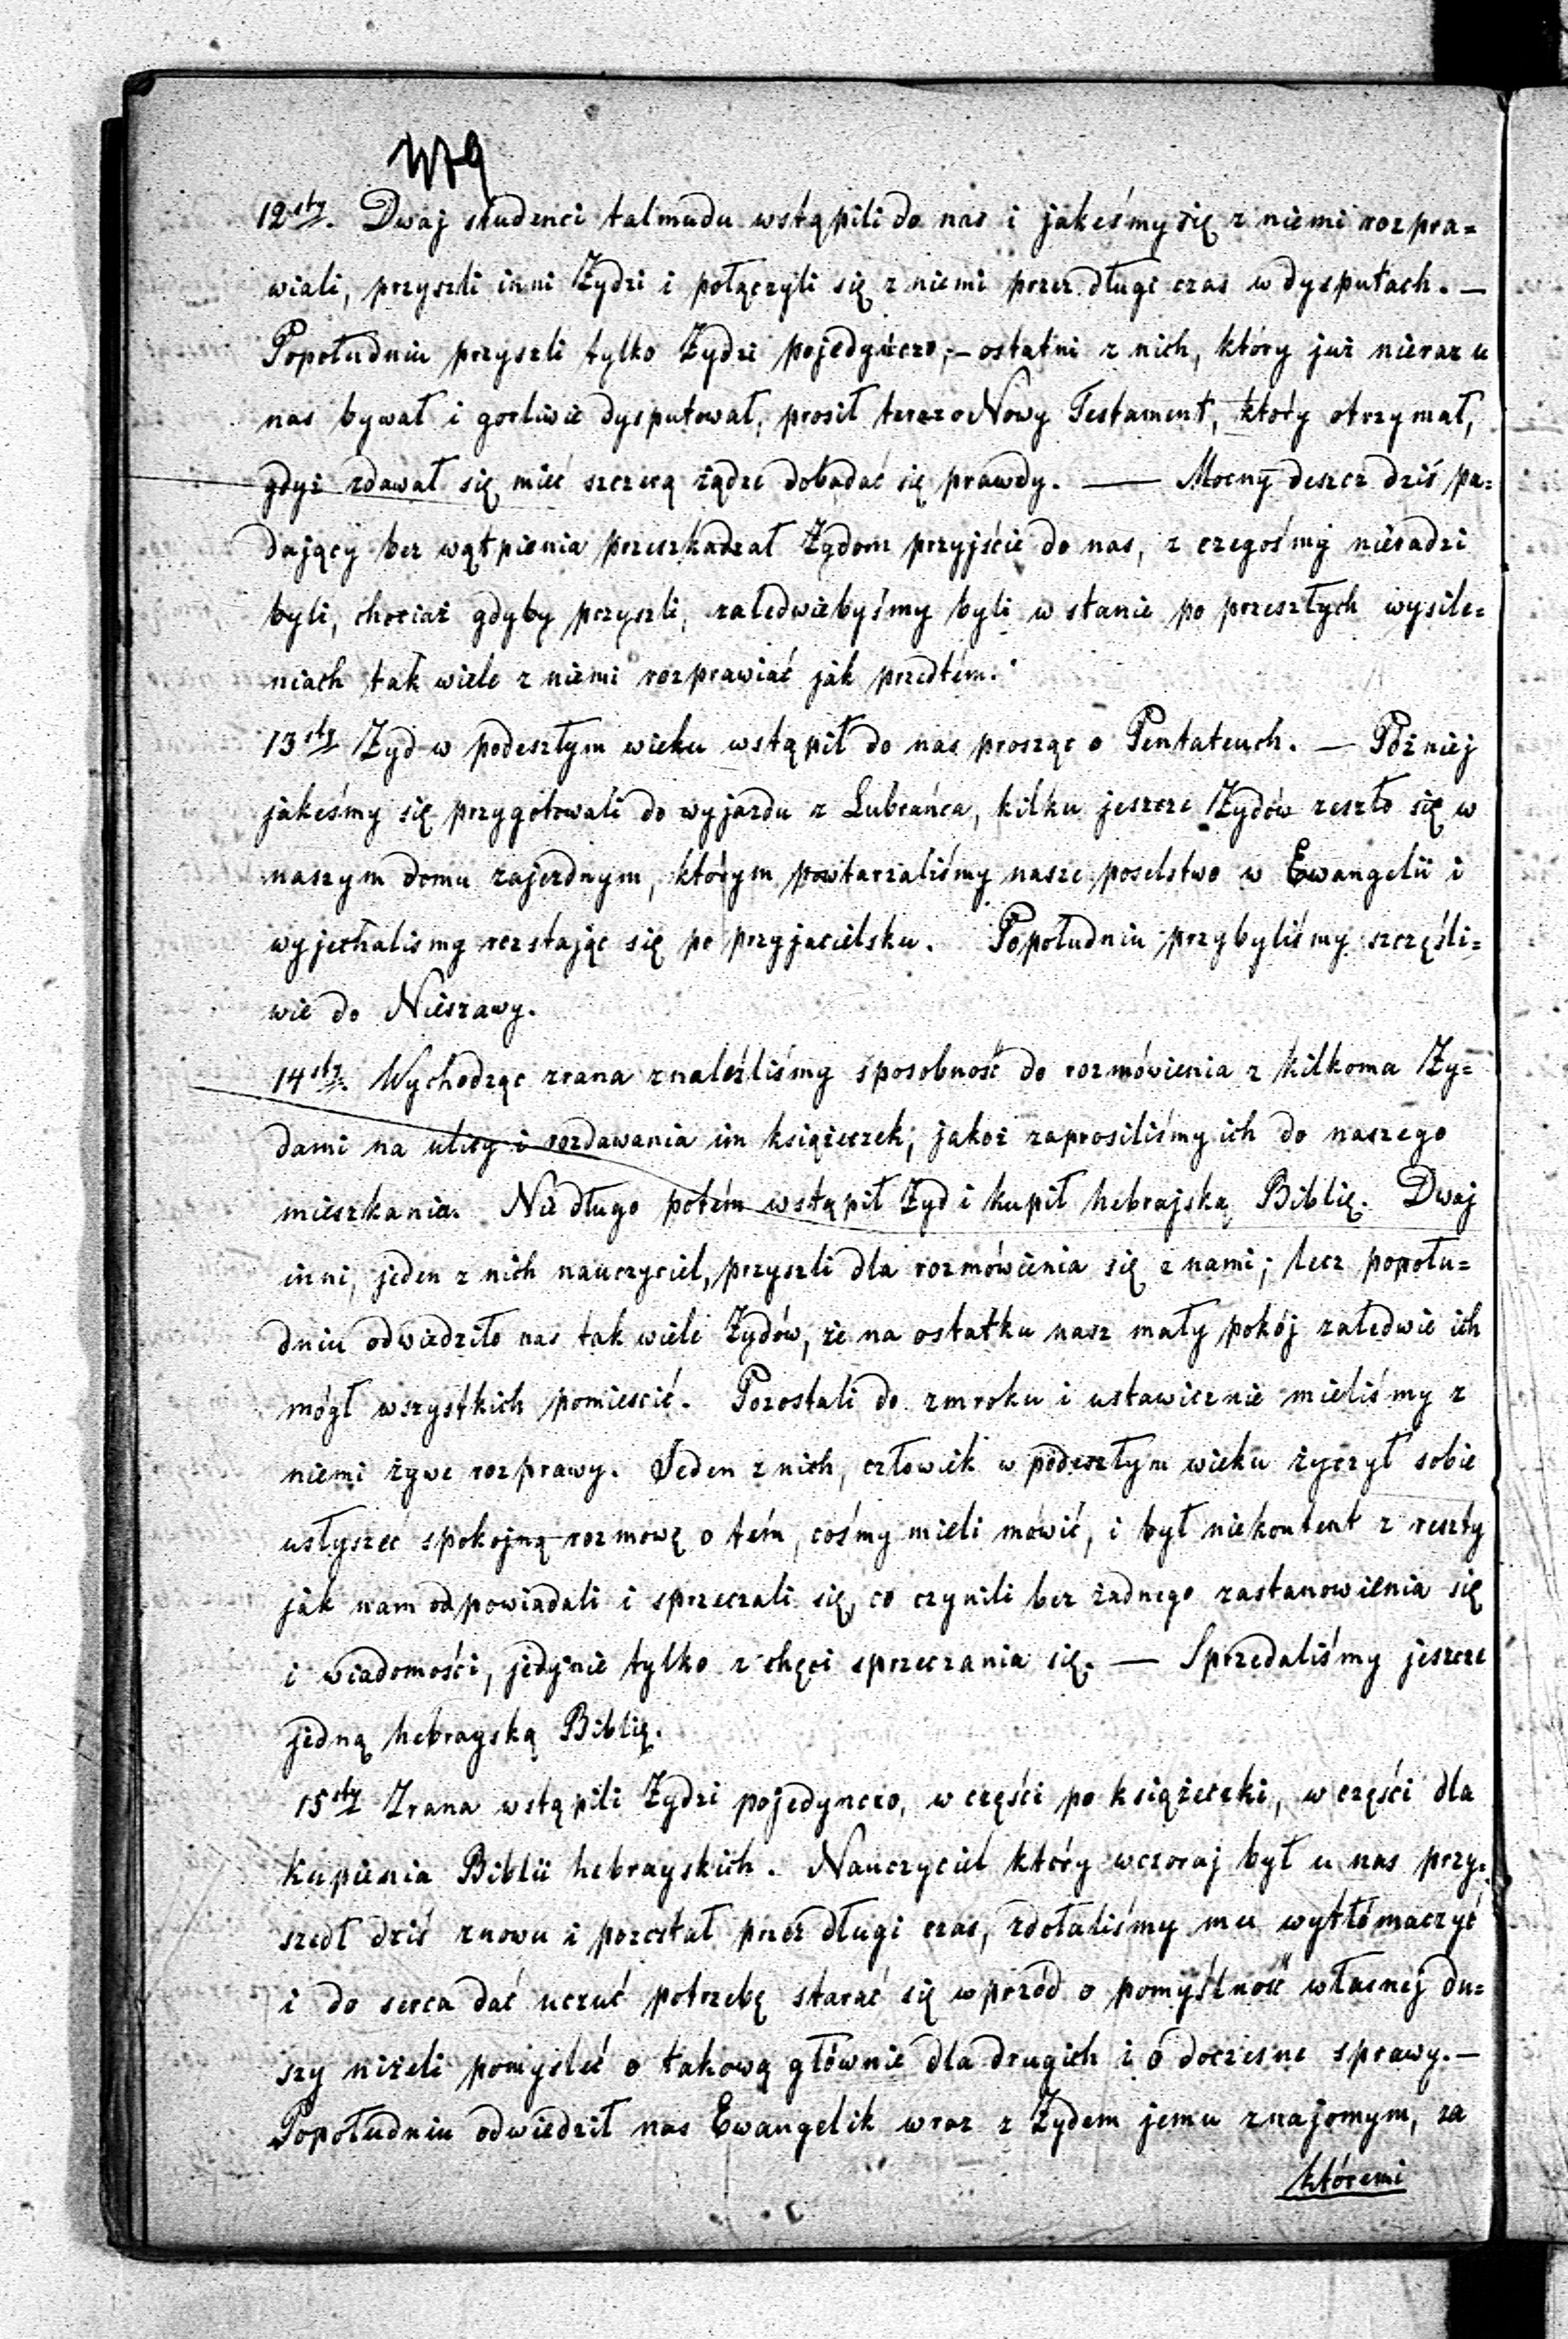 12sty. Dwaj studenci talmudu wstąpili do nas i jakeśmy się z niemi rozpra=
wiali, przyszli inni Żydzi i połączyli się z niemi przez długi czas w dysputach. —
Popołudniu przyszli tylko Żydzi pojedyńczo; — ostatni z nich, który już nieraz u
nas bywał i gorliwie dysputował, prosił teraz o Nowy Testament, który otrzymał,
gdyż zdawał się mieć szczerą żądzę dobadać się prawdy. — Mocny deszcz dziś pa=
dający bez wątpienia przeszkadzał Żydom przyjście do nas, z czegośmy nieradzi
byli, chociaż gdyby przyszli, zaledwiebyśmy byli w stanie po przeszłych wysile=
niach tak wiele z niemi rozprawiać jak przedtém.
13sty Żyd w podeszłym wieku wstąpił do nas prosząc o Pentateuch. — Póżniej
jakeśmy się przygotowali do wyjazdu z Lubrańca, kilku jeszcze Żydów zeszło się w
naszym domu zajezdnym, którym powtarzaliśmy nasze poselstwo w Ewangelii i
wyjechalismy rozstając się po przyjacielsku. Popołudniu przybyliśmy szczęśli=
wie do Nieszawy.
14sty. Wychodząc zrana znaleźliśmy sposobność do rozmówienia z kilkoma Ży=
dami na ulicy i rozdawania im książeczek; jakoż zaprosiliśmy ich do naszego
mieszkania. Nie długo potém wstąpił Żyd i kupił hebrajską Biblię. Dwaj
inni, jeden z nich nauczyciel, przyszli dla rozmówienia się z nami; lecz popołu=
dniu odwiedziło nas tak wiele Żydów, że na ostatku nasz mały pokój zaledwie ich
mógł wszystkich pomieścić. Pozostali do zmroku i ustawicznie mieliśmy z
niemi żywe rozprawy. Jeden z nich, człowiek w podeszłym wieku życzył sobie
usłyszeć spokojną rozmowę o tém, cośmy mieli mówić, i był niekontent z reszty
jak nam odpowiadali i sprzeczali się, co czynili bez żadnego zastanowienia się
i wiadomości, jedynie tylko z chęci sprzeczania się. — Sprzedaliśmy jeszcze
jedną hebrayską Biblię.
15sty Zrana wstąpili Żydzi pojedynczo, w części po książeczki, w części dla
kupienia Biblii hebrayskich. Nauczyciel który wczoraj był u nas przy=
szedł dziś znowu i pozostał przez długi czas, zdołaliśmy mu wytłómaczyć
i do serca dać uczuć potrzebę starać się wprzód o pomyślność własnej du=
szy niżeli pomysleć o takową głównie dla drugich i o doczesne sprawy. —
Popołudniu odwiedził nas Ewangelik wraz z Żydem jemu znajomym, za
któremi